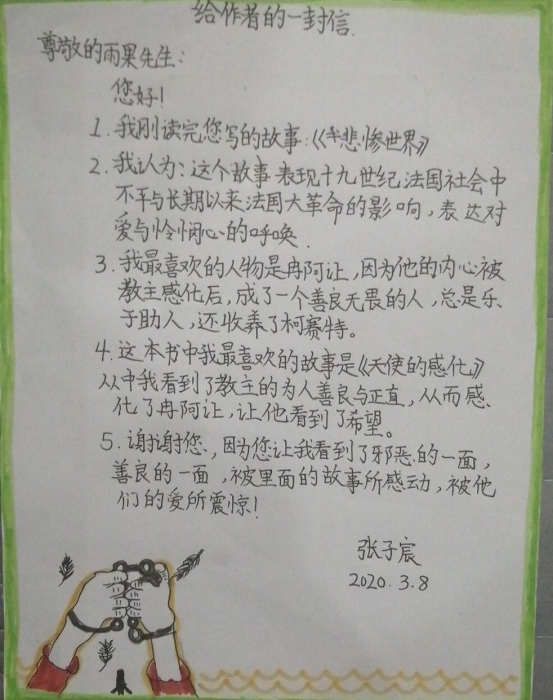 给作者的一封信.
尊敬的雨果先生:
您好!
1.我刚读完您写的故事:《悲惨世界》
2.我认为:这个故事表现十九世纪法国社会中
不平与长期以来法国大革命的影响,表达对
爱与怜悯心的呼唤.
3.我最喜欢的人物是冉阿让,因为他的内心被
教主感化后,成了一个善良无畏的人,总是乐
于助人,还收养了柯赛特。
4.这本书中我最喜欢的故事是《天使的感化》
从中我看到了教主的为人善良与正直,从而感
化了冉阿让,让他看到了希望。
5.谢谢您,因为您让我看到了邪恶的一面,
善良的一面,被里面的故事所感动,被他
们的爱所震惊!
张子宸
2020.3.8